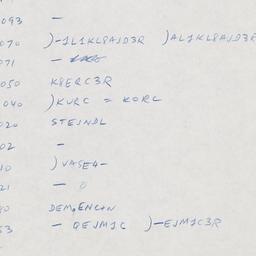 093 –
070 )-1L1KL8AJD3R )AL1KL8AJD3R
071 –
050 K8ERC3R
040 )KURC = KORC
020 STEJNDL
02 –
10 )VASE4-
21 – 0
40 DEM.ENC4N
53 – QEJM1C )-EJM1C3R